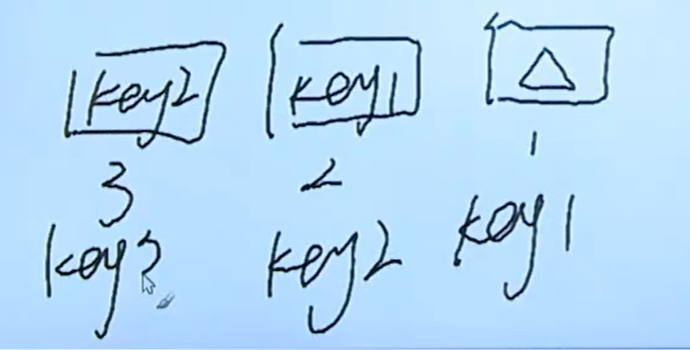 key2 key1
3 2 1
key3 key2 key1